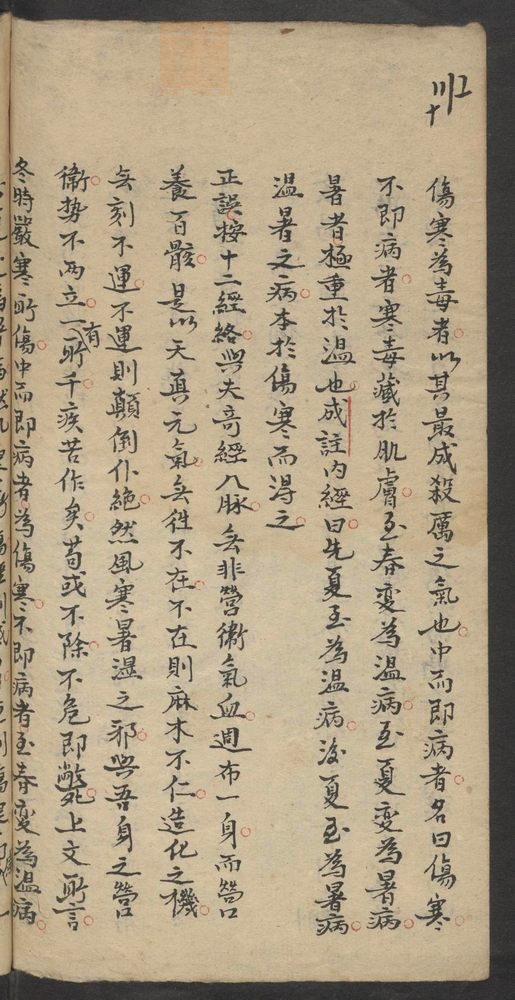 傷寒為毒者以其最成殺厲之氣也中而即病者名曰傷寒
不即病者寒毒藏於肌膚至春變為温病至夏變為暑病
暑者極重於温也成註內經曰先夏至為温病後夏至為暑病
温暑之病本於傷寒而得之
正誤按十二經絡與夫奇經八脉無非營衛氣血週布一身而營
養百骸是以天真元氣無徃不在不在則麻木不仁造化之機
無刻不運不運則顛倒仆絶然風寒暑湿之邪與吾身之營
衛势不两立一有所干疾苦作矣苟或不除不危即斃上文所言
冬時嚴寒所傷中而即病者為傷寒不即病者至春變為温病